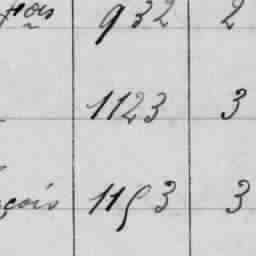 932 2
1123 3
çois 1153 3